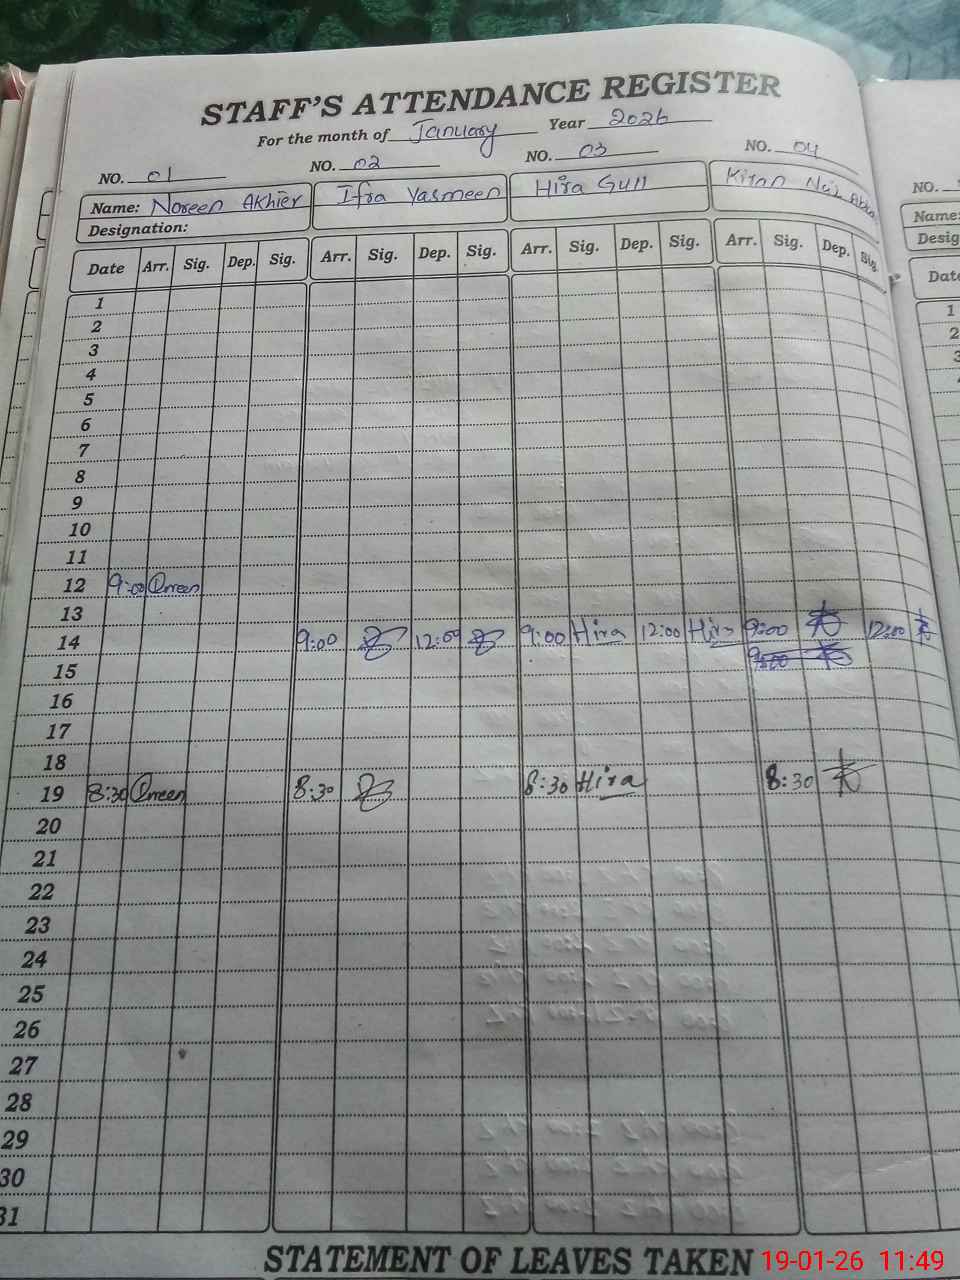 STAFF'S ATTENDANCE REGISTER
For the month of January Year 2026
NO. 01 NO. 02 NO. 03 NO. 04 NO.
Name: Noreen Akhter Ifra Yasmeen Hira Gull Kiran Name:
Designation: Desig
Date Arr. Sig. Dep. Sig. Arr. Sig. Dep. Sig. Arr. Sig. Dep. Sig. Arr. Sig. Dep. Sig. Date
1 1
2 2
3 3
4
5
6
7
8
9
10
11
12 9:00
13
14 9:00 12:00 9:00 Hira 12:00 Hira 9:00 12:00
15 9:00
16
17
18
19 8:30 8:30 8:30 Hira 8:30
20
21
22
23
24
25
26
27
28
29
30
31
STATEMENT OF LEAVES TAKEN
19-01-26 11:49